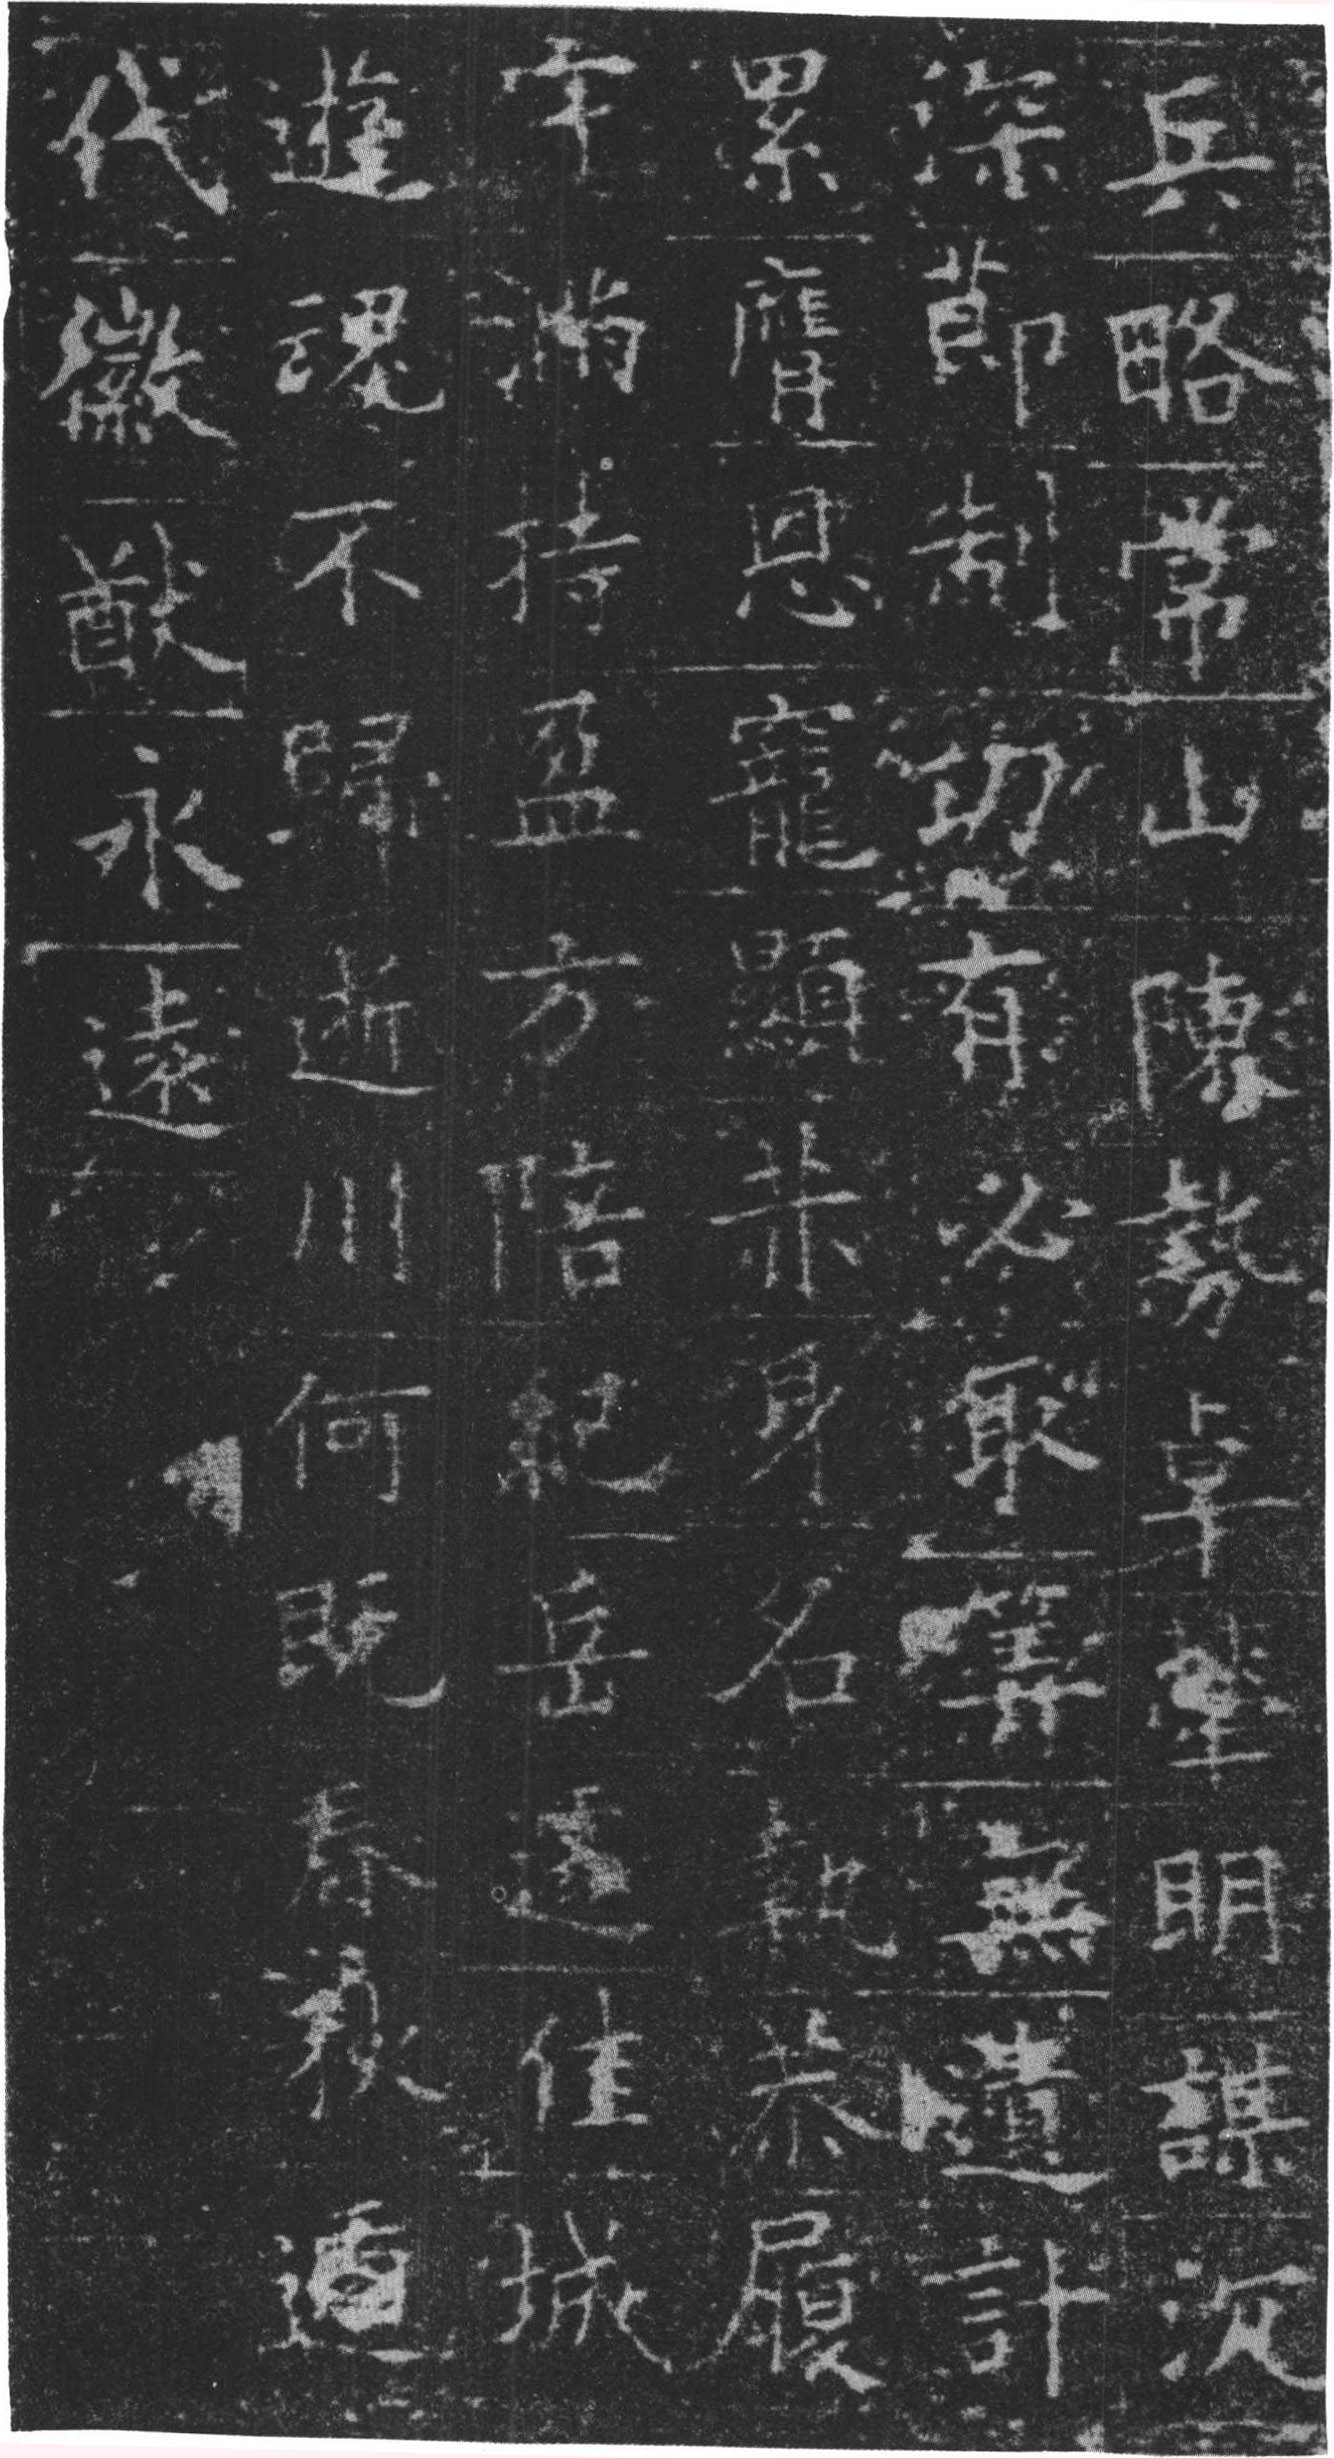 兵略常山陳勢卓犖明謀沉
深節制功有必取筭無遺計
累膺恩寵顯身名執恭履
守滿持盈方陪紀岳遽佳城
遊魂不歸逝川何既春秋遞
代徽猷永遠